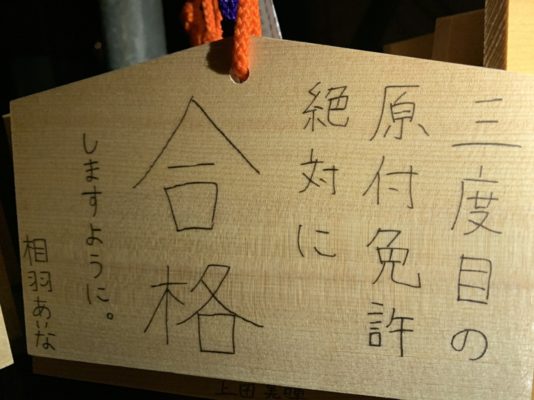 三度目の
原付免許
絶対に
合格
しますように。
相羽あいな